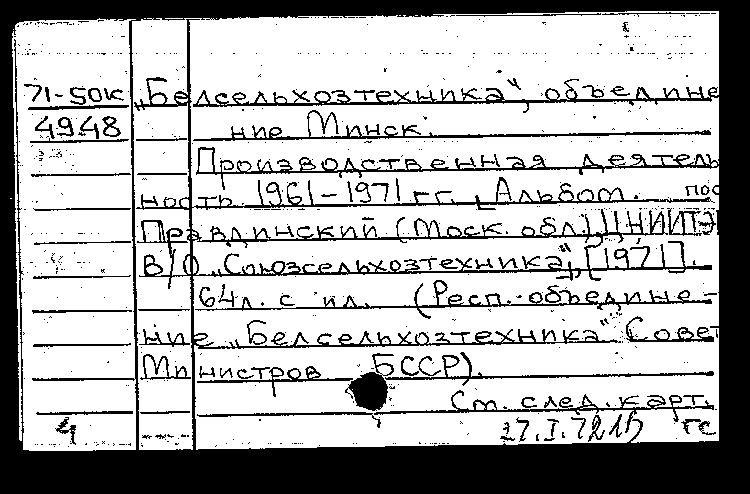 71-50к „Белсельхозтехника“, объедине
4948 ние Минск.
Производственная деятель
ность 1961-1971 гг. Альбом. пос
Правдинский (Моск. обл.), ЦНИИТЭИ
В/О „Союзсельхозтехника“, [1971].
64л. с ил. (Респ. объедине-
ние „Белсельхозтехника“ Совет
Министров БССР).
См. след. карт.
27.I.72 гс